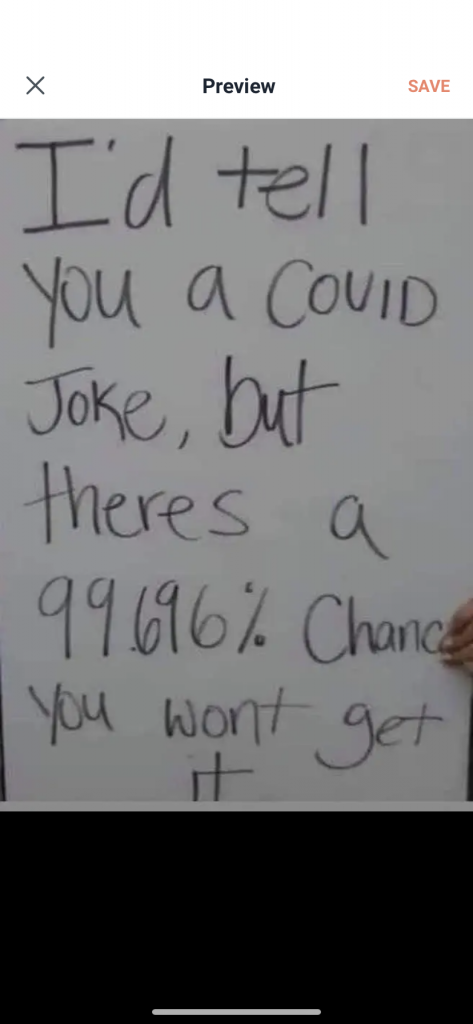 Preview
SAVE
I'd tell
you a COVID
Joke, but
theres a
99.696% Chanc
you wont get
it